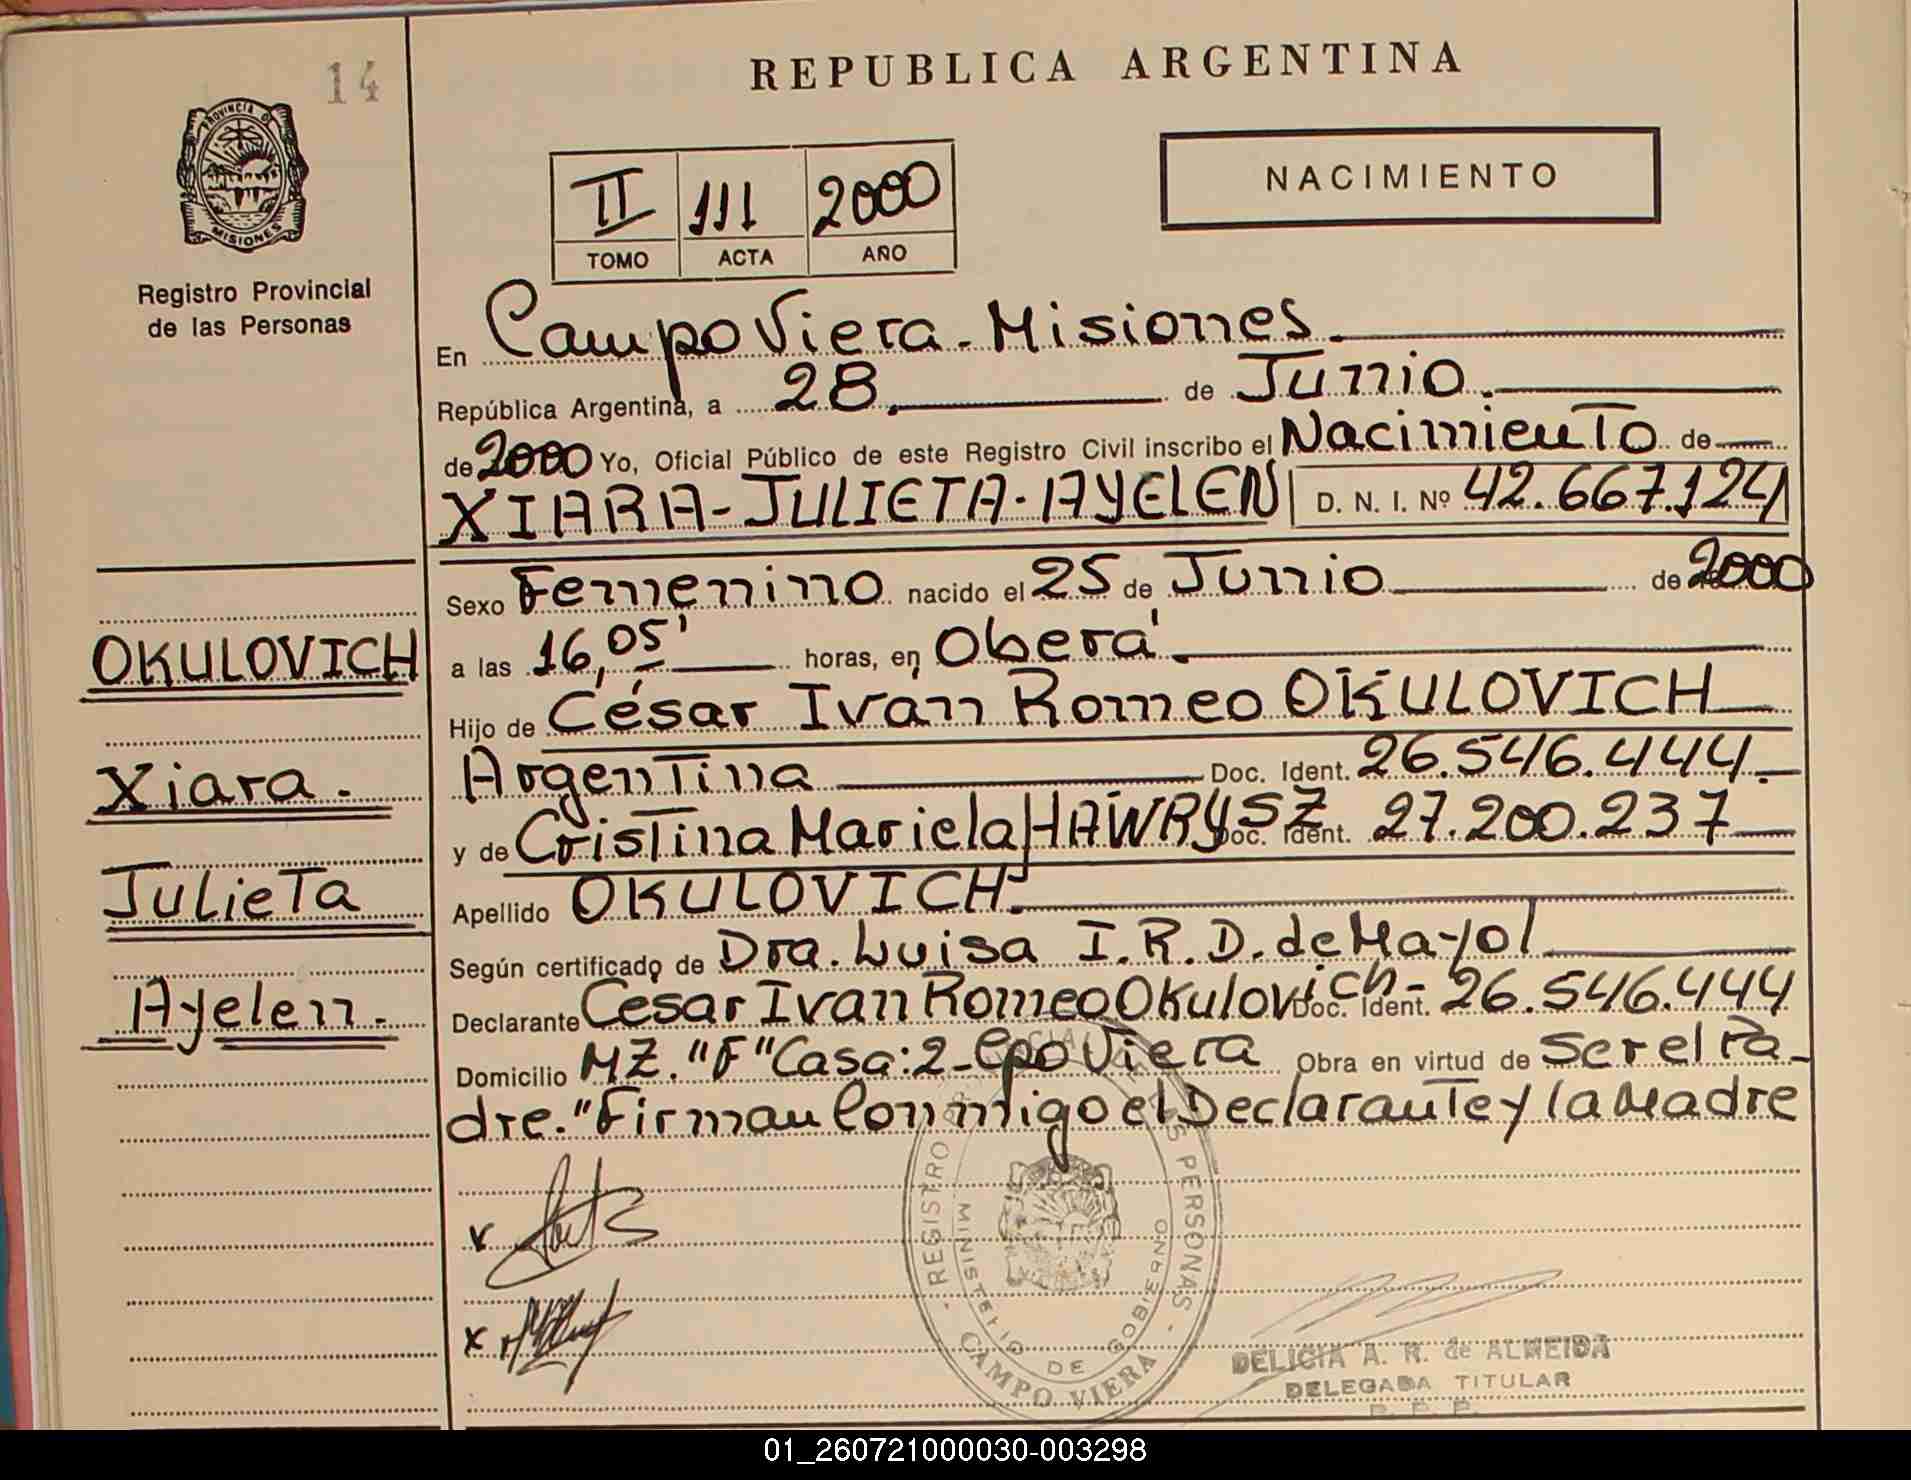 14
REPUBLICA ARGENTINA
PROVINCIA DE
MISIONES
Registro Provincial
de las Personas
II 111 2000
TOMO ACTA AÑO
NACIMIENTO
En Campo Viera - Misiones
República Argentina, a 28 de Junio
de 2000 Yo, Oficial Público de este Registro Civil inscribo el Nacimiento de
XIARA-JULIETA-AYELEN D. N. I. Nº 42.667.124
Sexo Femenino nacido el 25 de Junio de 2000
a las 16,05' horas, en Oberá
Hijo de César Iván Romeo OKULOVICH
Argentina Doc. Ident. 26.546.444
y de Cristina Mariela HAWRYSZ Doc. Ident. 27.200.237
Apellido OKULOVICH
Según certificado de Dra. Luisa I. R. D. de Mayol
Declarante César Ivan Romeo Okulovich - Doc. Ident. 26.546.444
Domicilio MZ. "F" Casa: 2 - Cpo Viera Obra en virtud de Ser el Pa-
dre. "Firman Conmigo el Declarante y la Madre
OKULOVICH
Xiara.
Julieta
Ayelen.
x
x
REGISTRO PERSONAS
MINISTERIO DE GOBIERNO
CAMPO VIERA
DELICIA A. R. de ALMEIDA
DELEGADA TITULAR
01_260721000030-003298